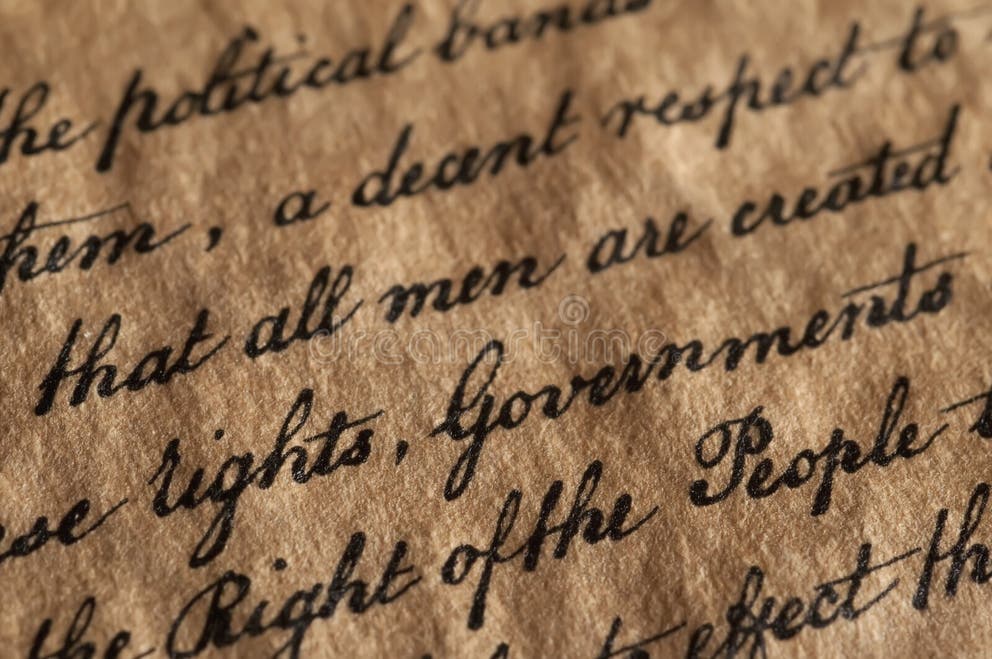 the political bands
them, a decent respect to
that all men are created
dreamstime
rights, Governments
the Right of the People
to effect th